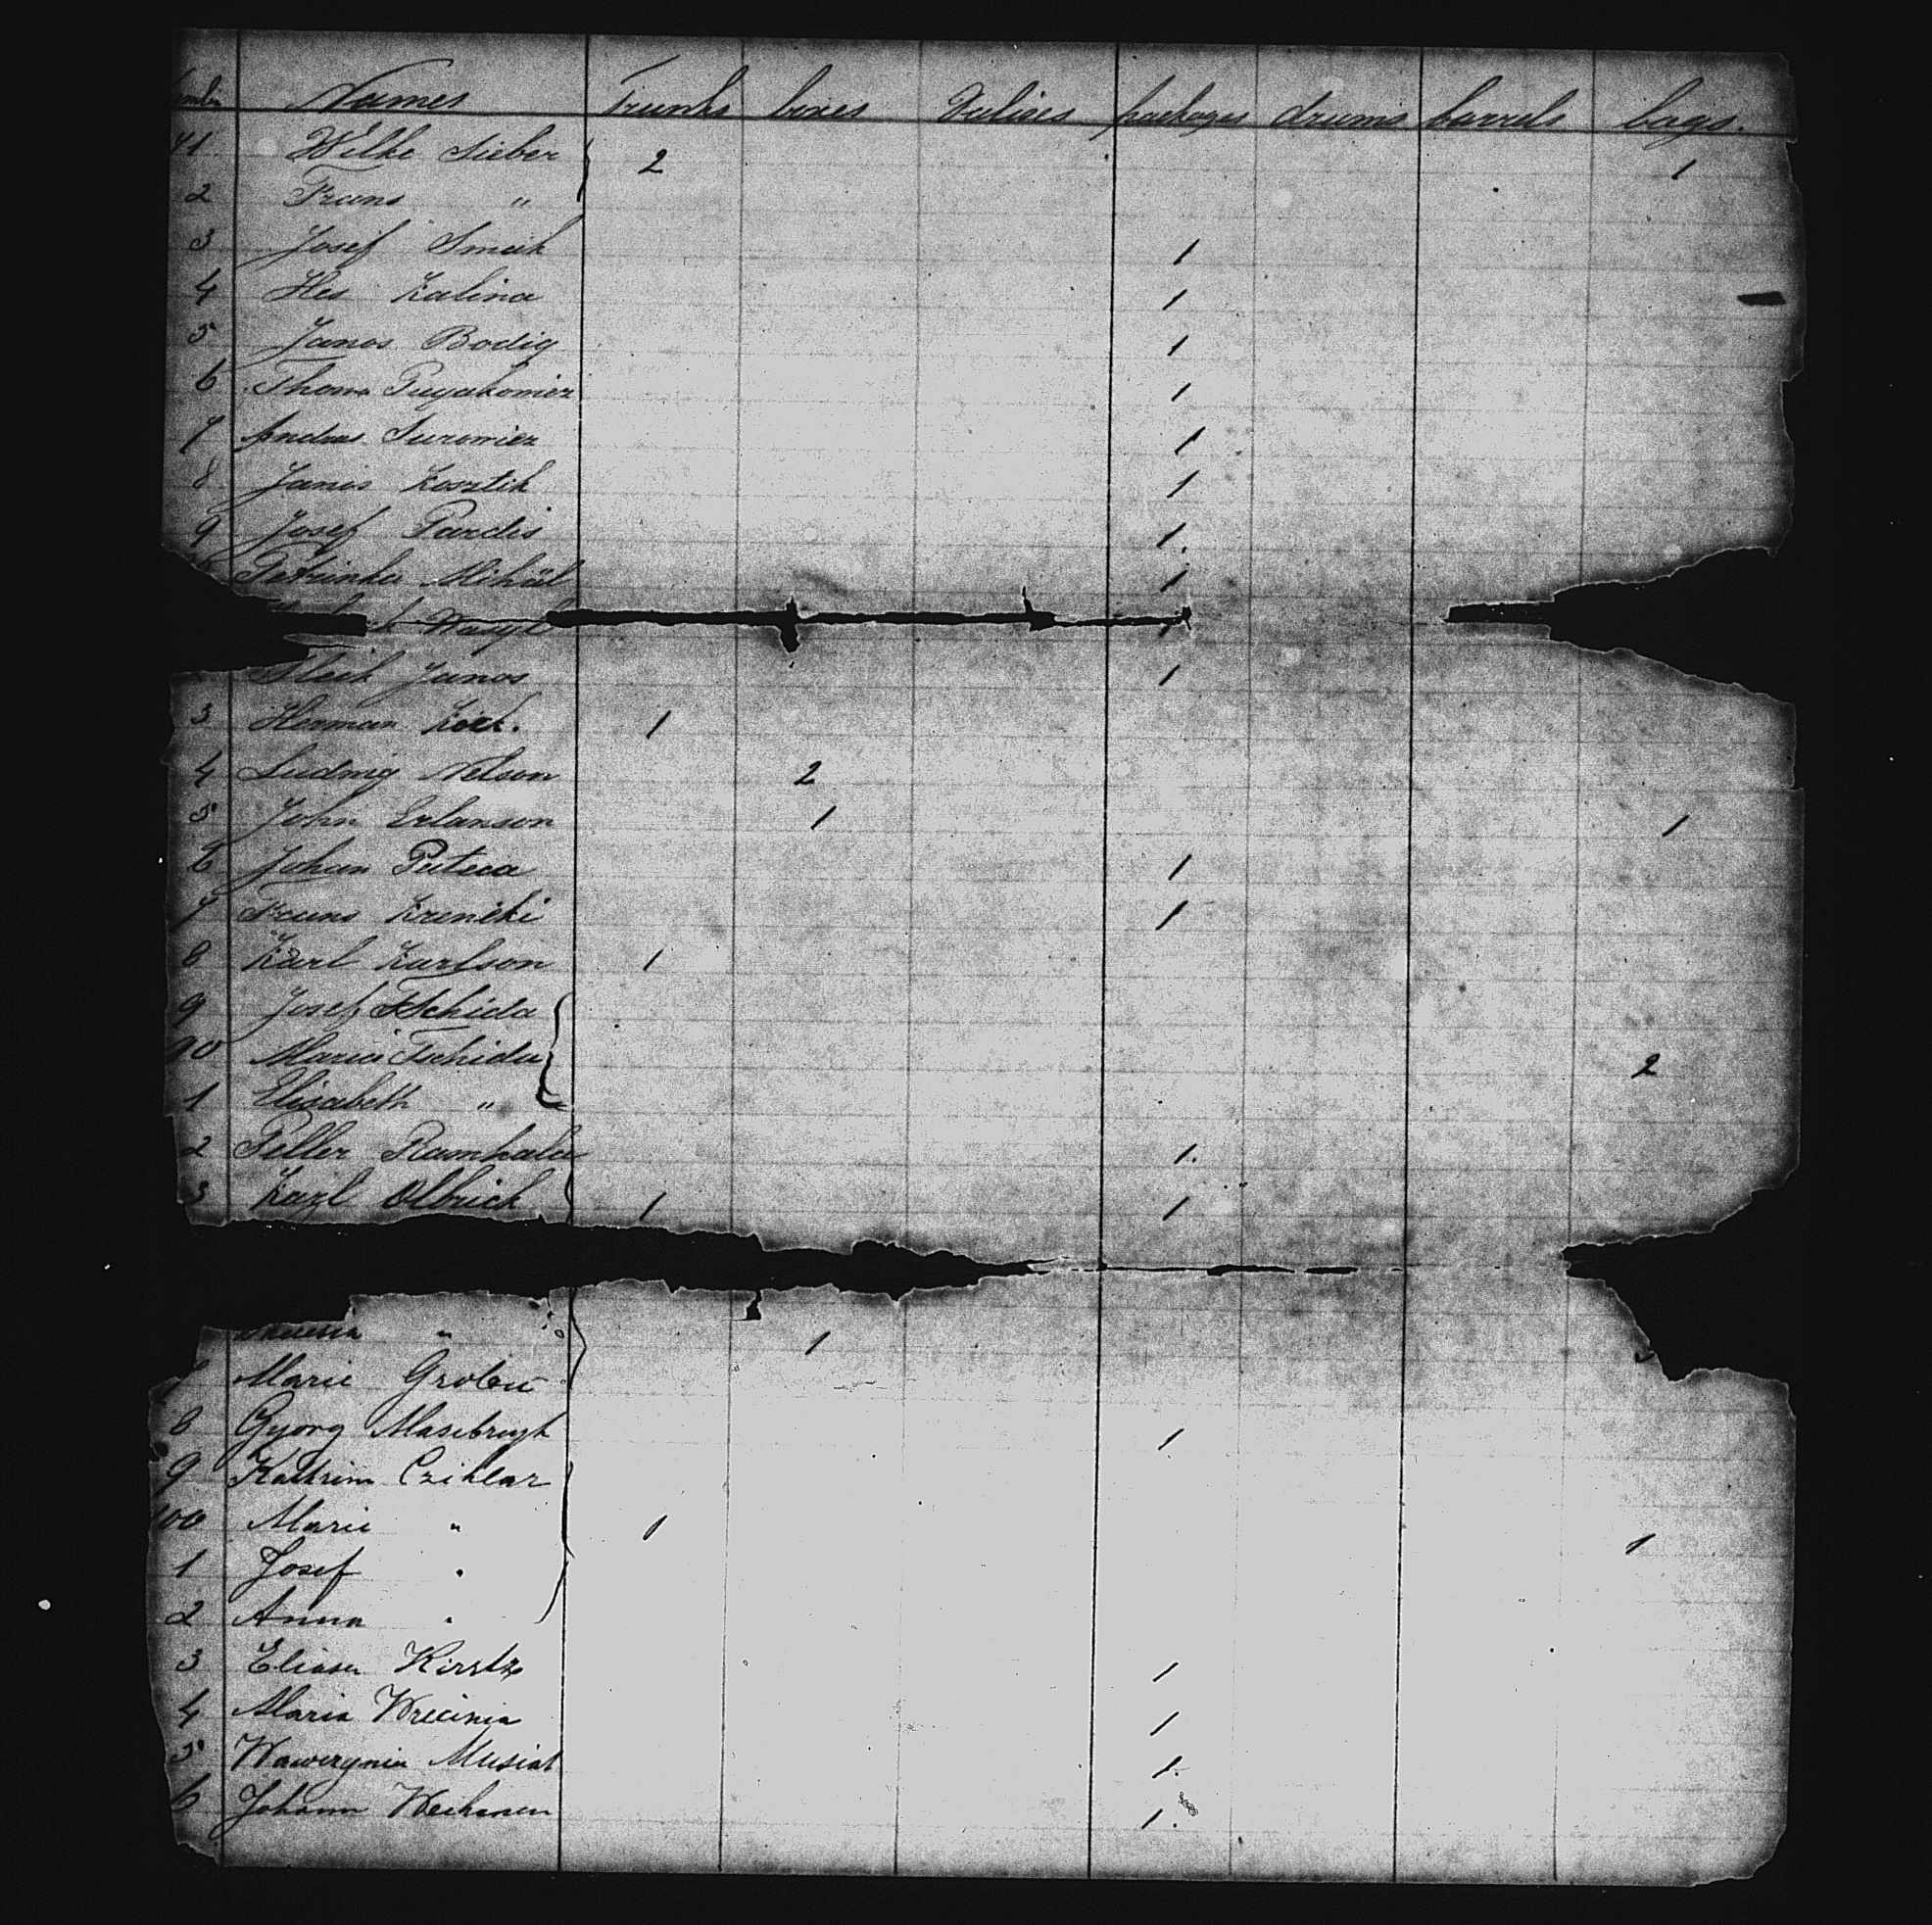 Names Trunks boxes Valises packages drums barrels bags.
71 Wilke Sieber 2 1
2 Frans "
3 Josef Smeik 1
4 Iles Kalina 1
5 Janos Bodig 1
6 Thoms 1
7 Andras 1
8 Janos Kosztik 1
9 Josef Pardis 1.
Petrinka Mihàl 1
Wasyl 1
Janos 1
3 Herman Kock. 1
4 Ludwig Nelson 2
5 John Erlanson 1 1
6 Johan Puteca 1
7 Frans Krenicki 1
8 Karl Karlson 1
9 Josef Tschida
90 Maria Tschida 2
1 Elisabeth "
2 Peller Ramhala 1.
3 Karl Olbrich 1 1
" 1
7 Marie
8 Gyorg 1
9 Kathrina Czihlar
100 Marie " 1 1
1 Josef "
2 Anna "
3 Eliasu Kirstz 1
4 Maria Wrecinia 1
5 Wawerynia Musial 1.
6 Johann 1.